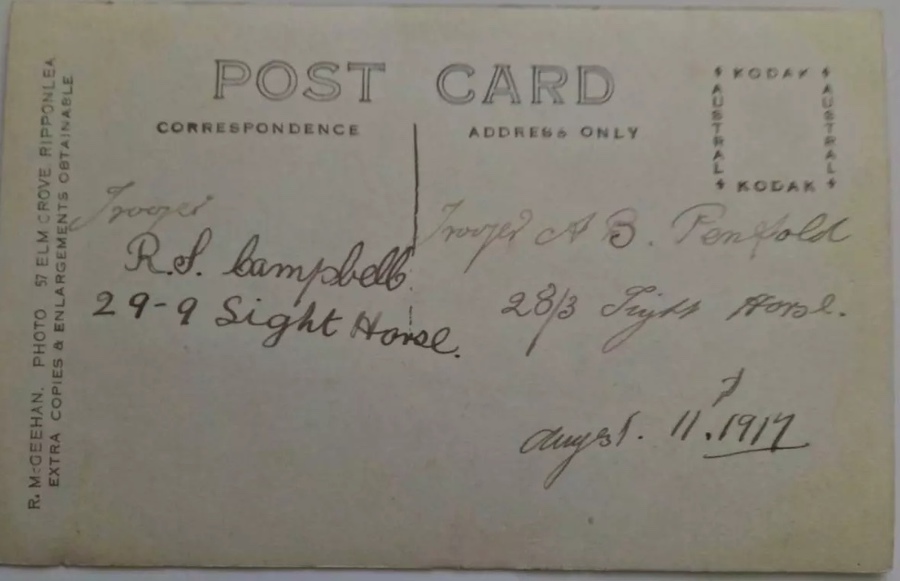 POST CARD
CORRESPONDENCE
ADDRESS ONLY
KODAK
AUSTRAL
AUSTRAL
KODAK
R. McGEEHAN. PHOTO 57 ELM GROVE RIPPONLEA
EXTRA COPIES & ENLARGEMENTS OBTAINABLE
Trooper
R.S. Campbell
29-9 Light Horse.
Trooper A B. Penfold
28/3 Light Horse.
august. 11. 1917